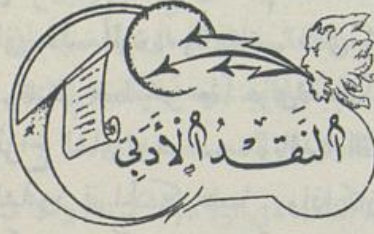 النَقَدُ الأَدَبيَ